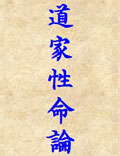 道家性命論